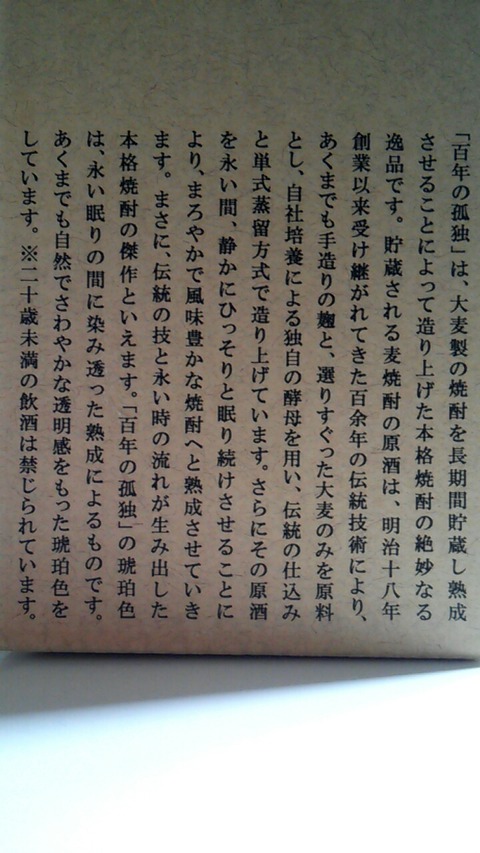 「百年の孤独」は、大麦製の焼酎を長期間貯蔵し熟成
させることによって造り上げた本格焼酎の絶妙なる
逸品です。貯蔵される麦焼酎の原酒は、明治十八年
創業以来受け継がれてきた百余年の伝統技術により、
あくまでも手造りの麹と、選りすぐった大麦のみを原料
とし、自社培養による独自の酵母を用い、伝統の仕込み
と単式蒸留方式で造り上げています。さらにその原酒
を永い間、静かにひっそりと眠り続けさせることに
より、まろやかで風味豊かな焼酎へと熟成させていき
ます。まさに、伝統の技と永い時の流れが生み出した
本格焼酎の傑作といえます。「百年の孤独」の琥珀色
は、永い眠りの間に染み透った熟成によるものです。
あくまでも自然でさわやかな透明感をもった琥珀色を
しています。※二十歳未満の飲酒は禁じられています。